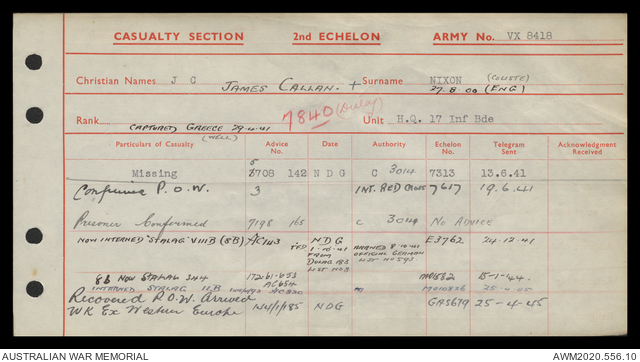 CASUALTY SECTION 2nd ECHELON ARMY No. VX 8418
Christian Names J C JAMES CALLAN. + Surname NIXON
27.8.00 (ENG)
7840 (Dulag)
Rank Unit H.Q. 17 Inf Bde
CAPTURED GREECE 29.4.41
(WELL)
Particulars of Casualty Advice No. Date Authority Echelon No. Telegram Sent Acknowledgment Received
Missing 3708 142 N D G C 3014 7313 13.6.41
5
Confirmed P.O.W. 3 INT. RED CROSS 7617 19.6.41
Prisoner Confirmed 7198 165 C 3014 No ADVICE
NOW INTERNED "STALAG" VIIIB (8B) AC1143 NDG E3762 24-12-41
1-10-41
FROM
DULAG 183
LIST NO 3
ARRIVED 8-10-41
OFFICIAL GERMAN
LIST NO 593
8b NOW STALAG 344 15-1-44.
AC654
INTERNED STALAG AC830 25-4-45
Recovered P.O.W. Arrived GA5679 25-4-45
UK Ex Western Europe NDG
AUSTRALIAN WAR MEMORIAL AWM2020.556.10